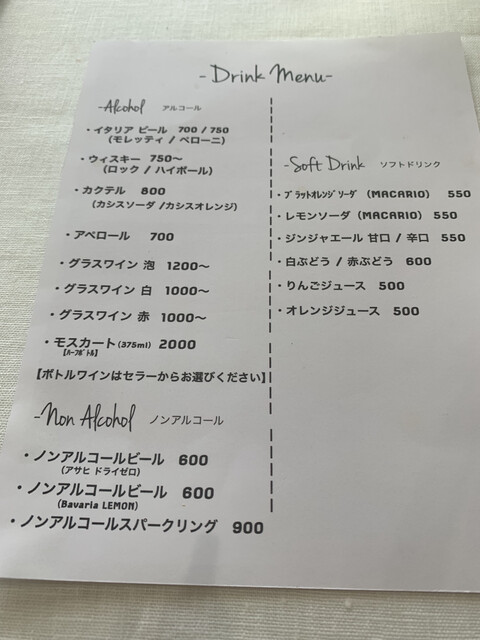 -Drink Menu-
-Alcohol アルコール
・イタリア ビール 700 / 750
(モレッティ / ペローニ)
・ウィスキー 750〜
(ロック / ハイボール)
・カクテル 800
(カシスソーダ /カシスオレンジ)
・アペロール 700
・グラスワイン 泡 1200〜
・グラスワイン 白 1000〜
・グラスワイン 赤 1000〜
・モスカート(375ml) 2000
【ハーフボトル】
【ボトルワインはセラーからお選びください】
-Non Alcohol ノンアルコール
・ノンアルコールビール 600
(アサヒ ドライゼロ)
・ノンアルコールビール 600
(Bavaria LEMON)
・ノンアルコールスパークリング 900
-Soft Drink ソフトドリンク
・ブラッドオレンジソーダ (MACARIO) 550
・レモンソーダ (MACARIO) 550
・ジンジャエール 甘口 / 辛口 550
・白ぶどう / 赤ぶどう 600
・りんごジュース 500
・オレンジジュース 500